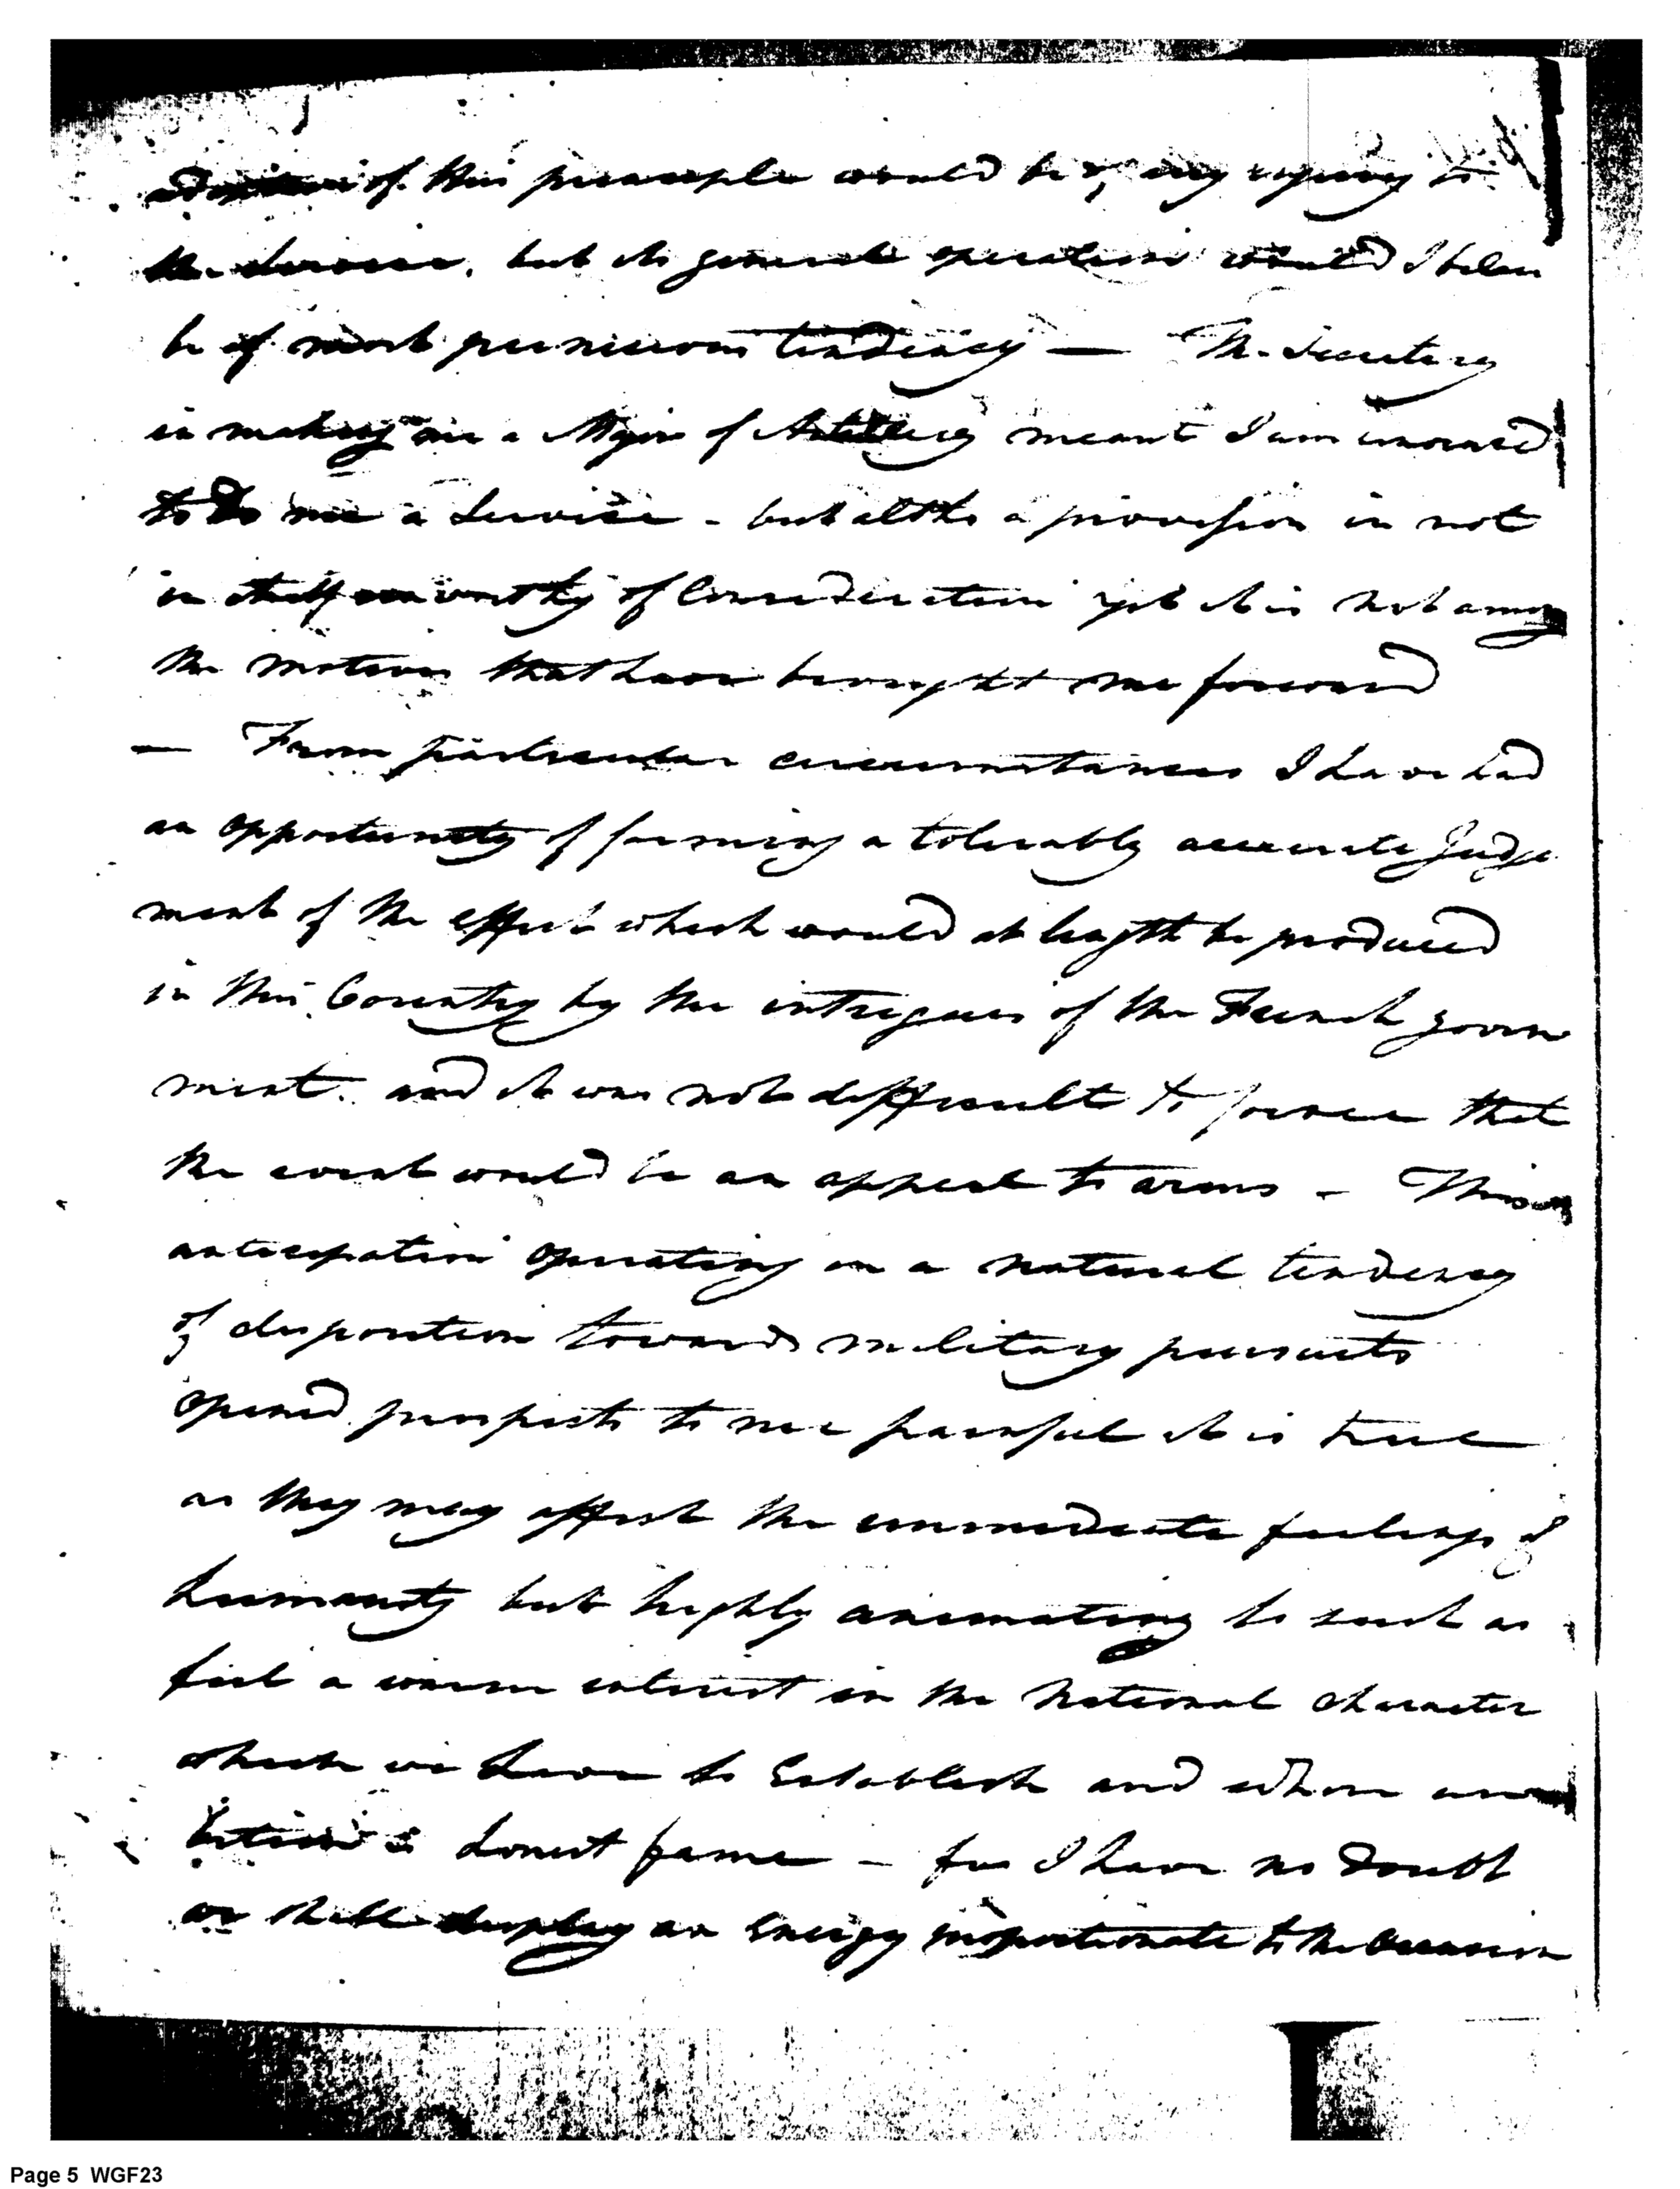 of this principle would be of any injury to
the service, but its general operation would I
be of most pernicious tendency — The Secretary
in making me a Major of Artillery meant I am
to do me a Service - but altho a provision is not
in itself unworthy of Consideration yet it is not among
the motives that have brought me forward
— From particular circumstances I have had
an opportunity of forming a tolerably accurate Judge
ment of the effect which would at length be produced
in this Country by the intrigues of the French govern
ment. and it was not difficult to foresee that
the event would be an appeal to arms - This
anticipation operating on a natural tendency
of disposition towards military pursuits
opened prospects to me painful it is true
as they may affect the immediate feelings of
humanity but highly animating to such as
feel a warm interest in the National character
which we have to Establish and whose am
bition is honest fame - for I have no doubt
we shall display an Energy proportionate to the Occasion
Page 5 WGF23